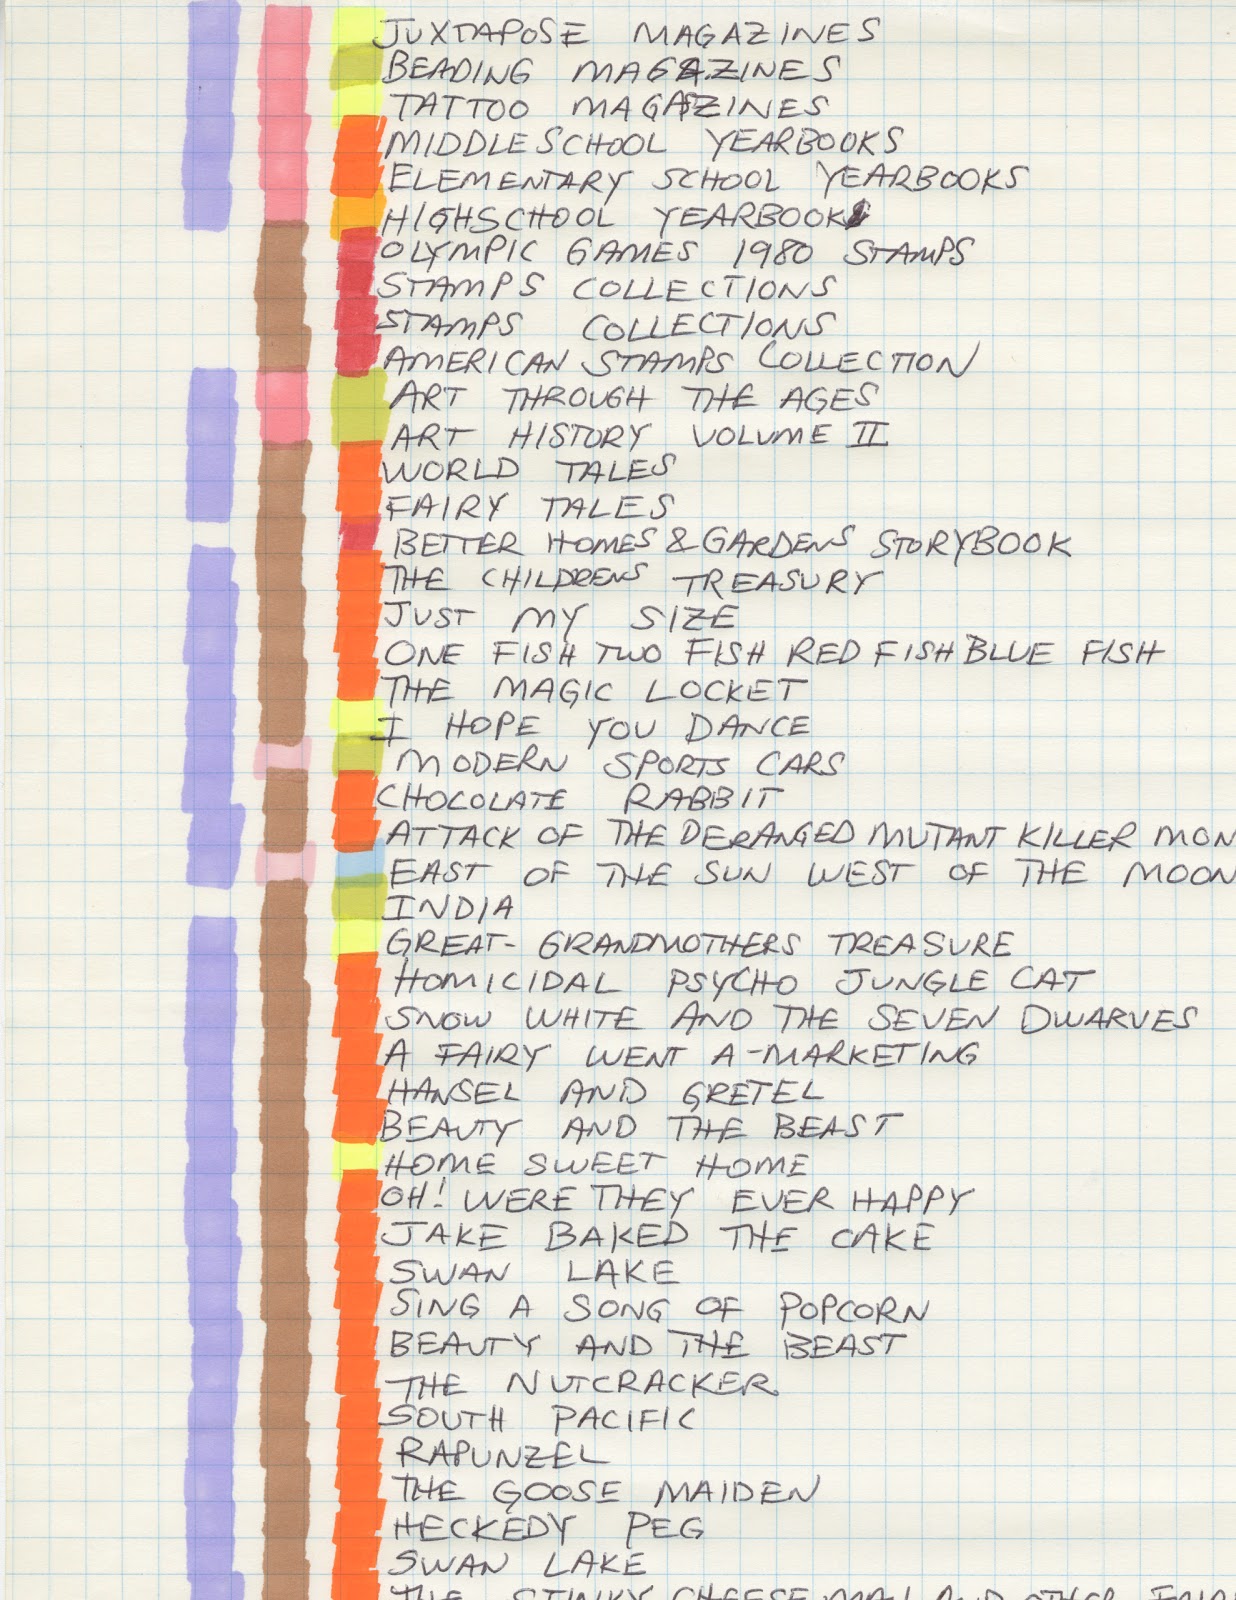 JUXTAPOSE MAGAZINES
BEADING MAGAZINES
TATTOO MAGAZINES
MIDDLE SCHOOL YEARBOOKS
ELEMENTARY SCHOOL YEARBOOKS
HIGHSCHOOL YEARBOOK
OLYMPIC GAMES 1980 STAMPS
STAMPS COLLECTIONS
STAMPS COLLECTIONS
AMERICAN STAMPS COLLECTION
ART THROUGH THE AGES
ART HISTORY VOLUME II
WORLD TALES
FAIRY TALES
BETTER HOMES & GARDENS STORYBOOK
THE CHILDRENS TREASURY
JUST MY SIZE
ONE FISH TWO FISH RED FISH BLUE FISH
THE MAGIC LOCKET
I HOPE YOU DANCE
MODERN SPORTS CARS
CHOCOLATE RABBIT
ATTACK OF THE DERANGED MUTANT KILLER MON
EAST OF THE SUN WEST OF THE MOON
INDIA
GREAT-GRANDMOTHERS TREASURE
HOMICIDAL PSYCHO JUNGLE CAT
SNOW WHITE AND THE SEVEN DWARVES
A FAIRY WENT A-MARKETING
HANSEL AND GRETEL
BEAUTY AND THE BEAST
HOME SWEET HOME
OH! WERE THEY EVER HAPPY
JAKE BAKED THE CAKE
SWAN LAKE
SING A SONG OF POPCORN
BEAUTY AND THE BEAST
THE NUTCRACKER
SOUTH PACIFIC
RAPUNZEL
THE GOOSE MAIDEN
HECKEDY PEG
SWAN LAKE
THE STINKY CHEESE MAN AND OTHER